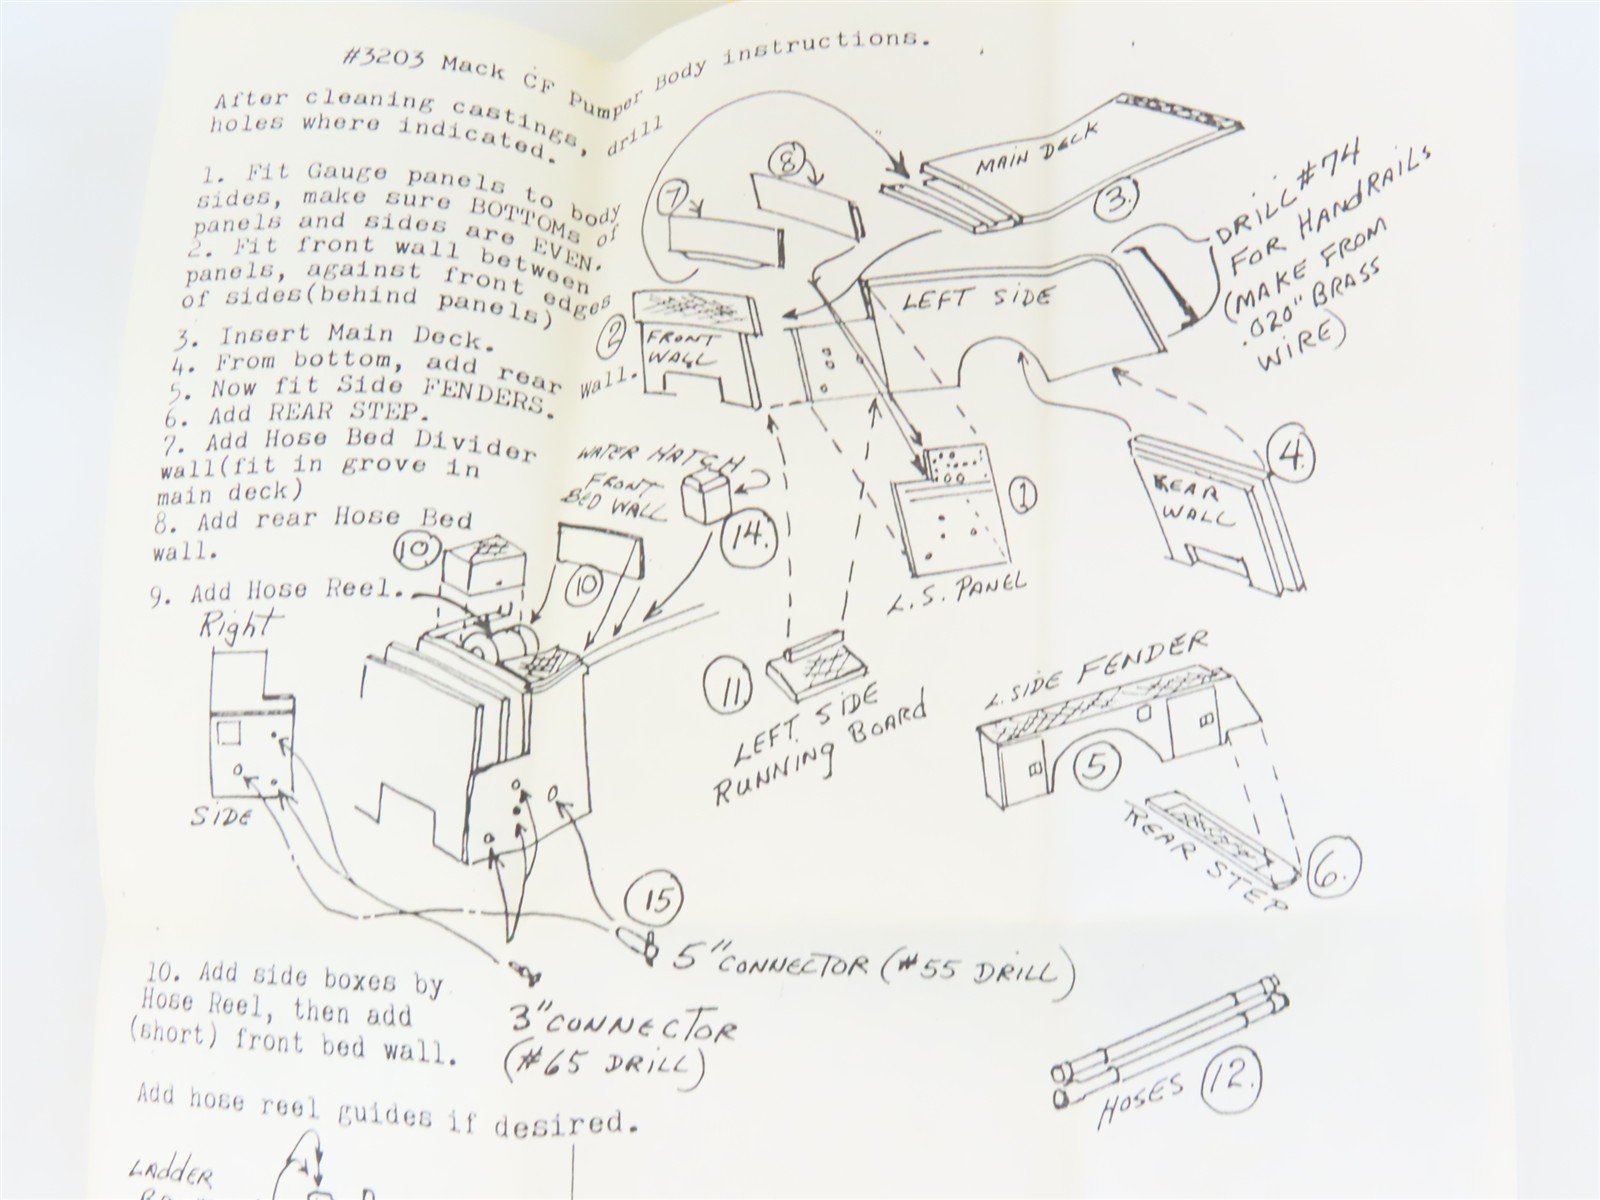 #3203 Mack CF Pumper Body instructions.
After cleaning castings, drill
holes where indicated.
1. Fit Gauge panels to body
sides, make sure BOTTOMs of
panels and sides are EVEN.
2. Fit front wall between
panels, against front edges
of sides(behind panels)
3. Insert Main Deck.
4. From bottom, add rear wall.
5. Now fit Side FENDERS.
6. Add REAR STEP.
7. Add Hose Bed Divider
wall(fit in grove in
main deck)
8. Add rear Hose Bed
wall.
9. Add Hose Reel.
10. Add side boxes by
Hose Reel, then add
(short) front bed wall.
Add hose reel guides if desired.
LADDER
7
8
MAIN DECK
3.
DRILL #74
FOR HANDRAILS
(MAKE FROM
.020" BRASS
WIRE)
2
FRONT
WALL
LEFT SIDE
4.
REAR
WALL
1
L.S. PANEL
WATER HATCH
FRONT
BED WALL
14.
10.
10
11
LEFT SIDE
RUNNING BOARD
L. SIDE FENDER
5
REAR STEP
6.
Right
SIDE
15
5" CONNECTOR (#55 DRILL)
3" CONNECTOR
(#65 DRILL)
HOSES 12.